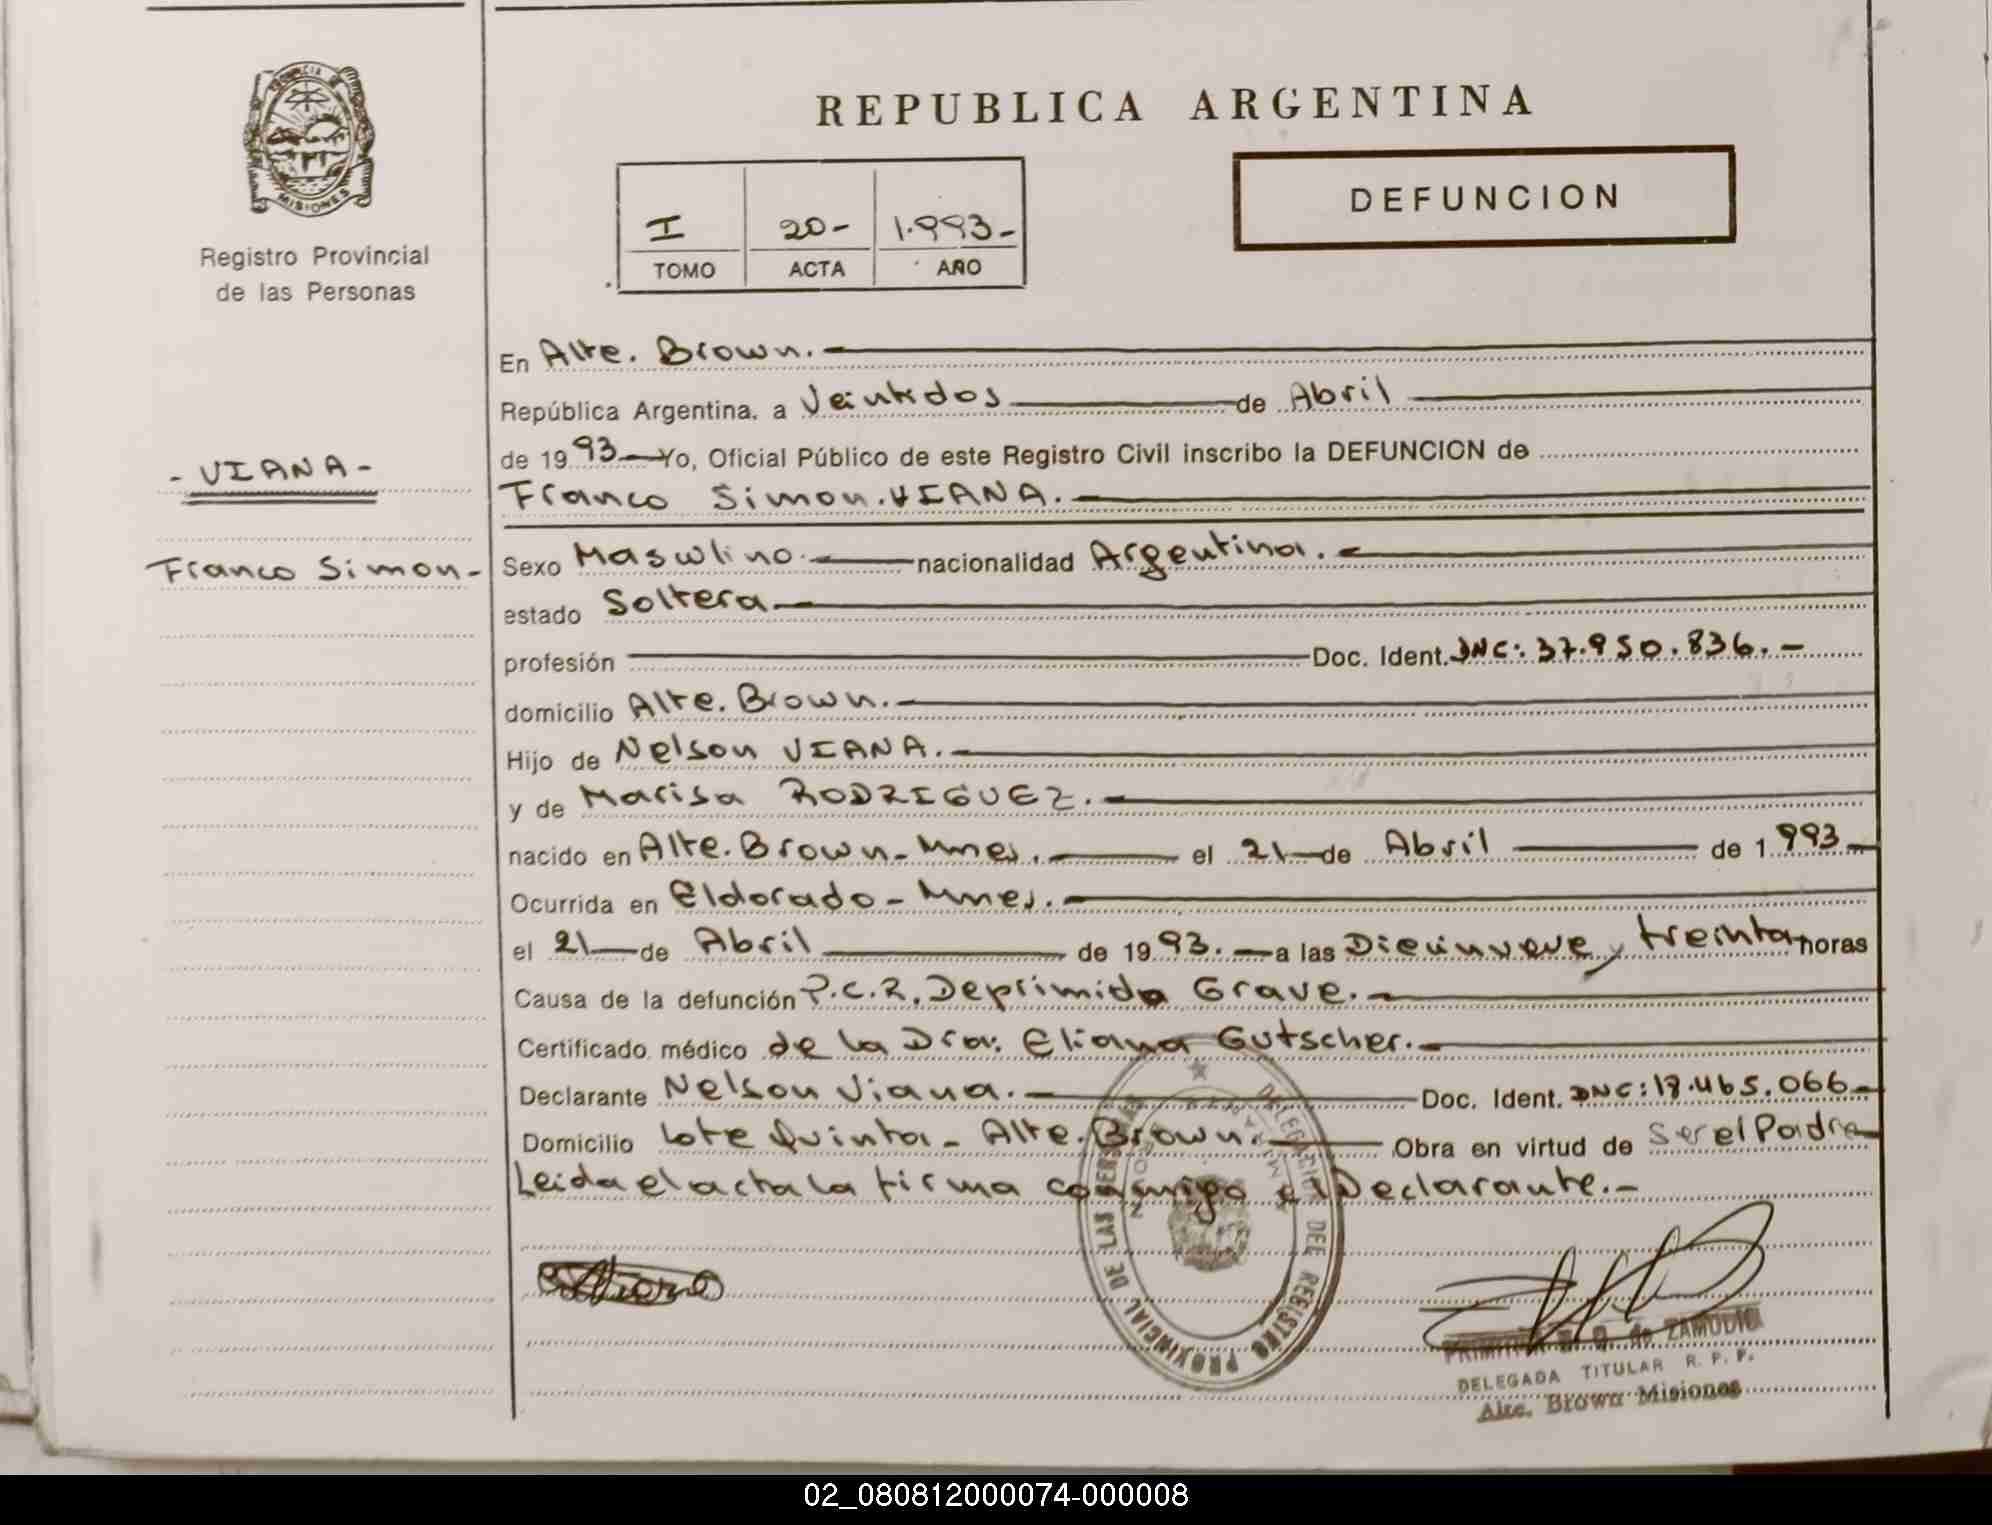 PROVINCIA DE
MISIONES
Registro Provincial
de las Personas
REPUBLICA ARGENTINA
I 20- 1.993-
TOMO ACTA AÑO
DEFUNCION
En Alte. Brown.
República Argentina, a Veintidos de Abril
de 1993 Yo, Oficial Público de este Registro Civil inscribo la DEFUNCION de
- VIANA -
Franco Simon VIANA.
Franco Simon-
Sexo Masculino nacionalidad Argentina.
estado Soltera
profesión Doc. Ident. DNC: 37.950.836.-
domicilio Alte. Brown.
Hijo de Nelson VIANA.
y de Marisa RODRIGUEZ.
nacido en Alte. Brown-Mnes. el 21 de Abril de 1993
Ocurrida en Eldorado-Mnes.
el 21 de Abril de 1993. a las Diecinueve y treinta horas
Causa de la defunción P.C.R. Deprimido Grave.
Certificado médico de la Dra. Eliana Gutscher.
Declarante Nelson Viana. Doc. Ident. DNC: 18.465.066
Domicilio Lote Quinta- Alte. Brown. Obra en virtud de Ser el Padre
Leida el acta la firma conmigo el Declarante.-
DELEGACION DEL REGISTRO PROVINCIAL DE LAS PERSONAS
de ZAMUDIO
DELEGADA TITULAR R. P. P.
Alte. Brown Misiones
02_080812000074-000008